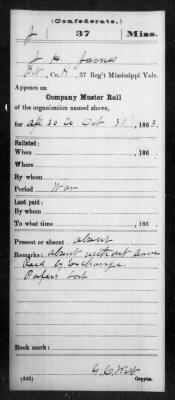 (Confederate.)
J 37 Miss.
J H
Pvt, Co. H, 37 Reg't Mississippi Vols.
Appears on
Company Muster Roll
of the organization named above,
for Apr 30 to Oct 31, 1863.
Enlisted:
When, 186
Where
By whom
Period War
Last paid:
By whom
To what time, 186
Present or absent absent
Remarks: absent without leave
Exchange
Papers Lost
Book mark:
(642) Copyist.